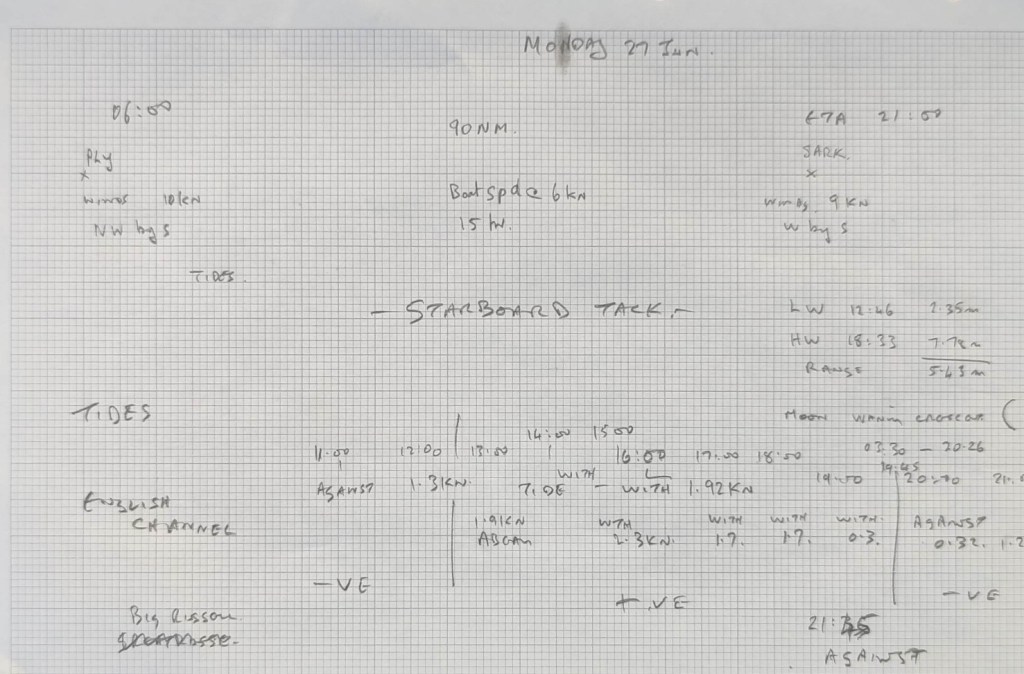 MONDAY 27 JUN.
06:00
90NM.
ETA 21:00
PLY
x
SARK.
x
WINDS 10KN
NW by S
Boat Spd @ 6 kN
15 hr.
WINDS 9 KN
W by S
TIDES.
- STARBOARD TACK -
LW 12:46 2.35m
HW 18:33 7.78m
RANGE 5.43m
TIDES
MOON (
03.30 - 20.26
11:00 12:00 13:00 14:00 15:00 16:00 17:00 18:00 19:00 19:45 20:00
AGAINST 1.3KN. TIDE WITH - WITH 1.92KN
ENGLISH
CHANNEL
1.91KN
WITH WITH WITH WITH. AGAINST
2.3KN. 1.7. 1.7. 0.3. 0.32. 1.2
-VE
+.VE
-VE
Big
21:
AGAINST